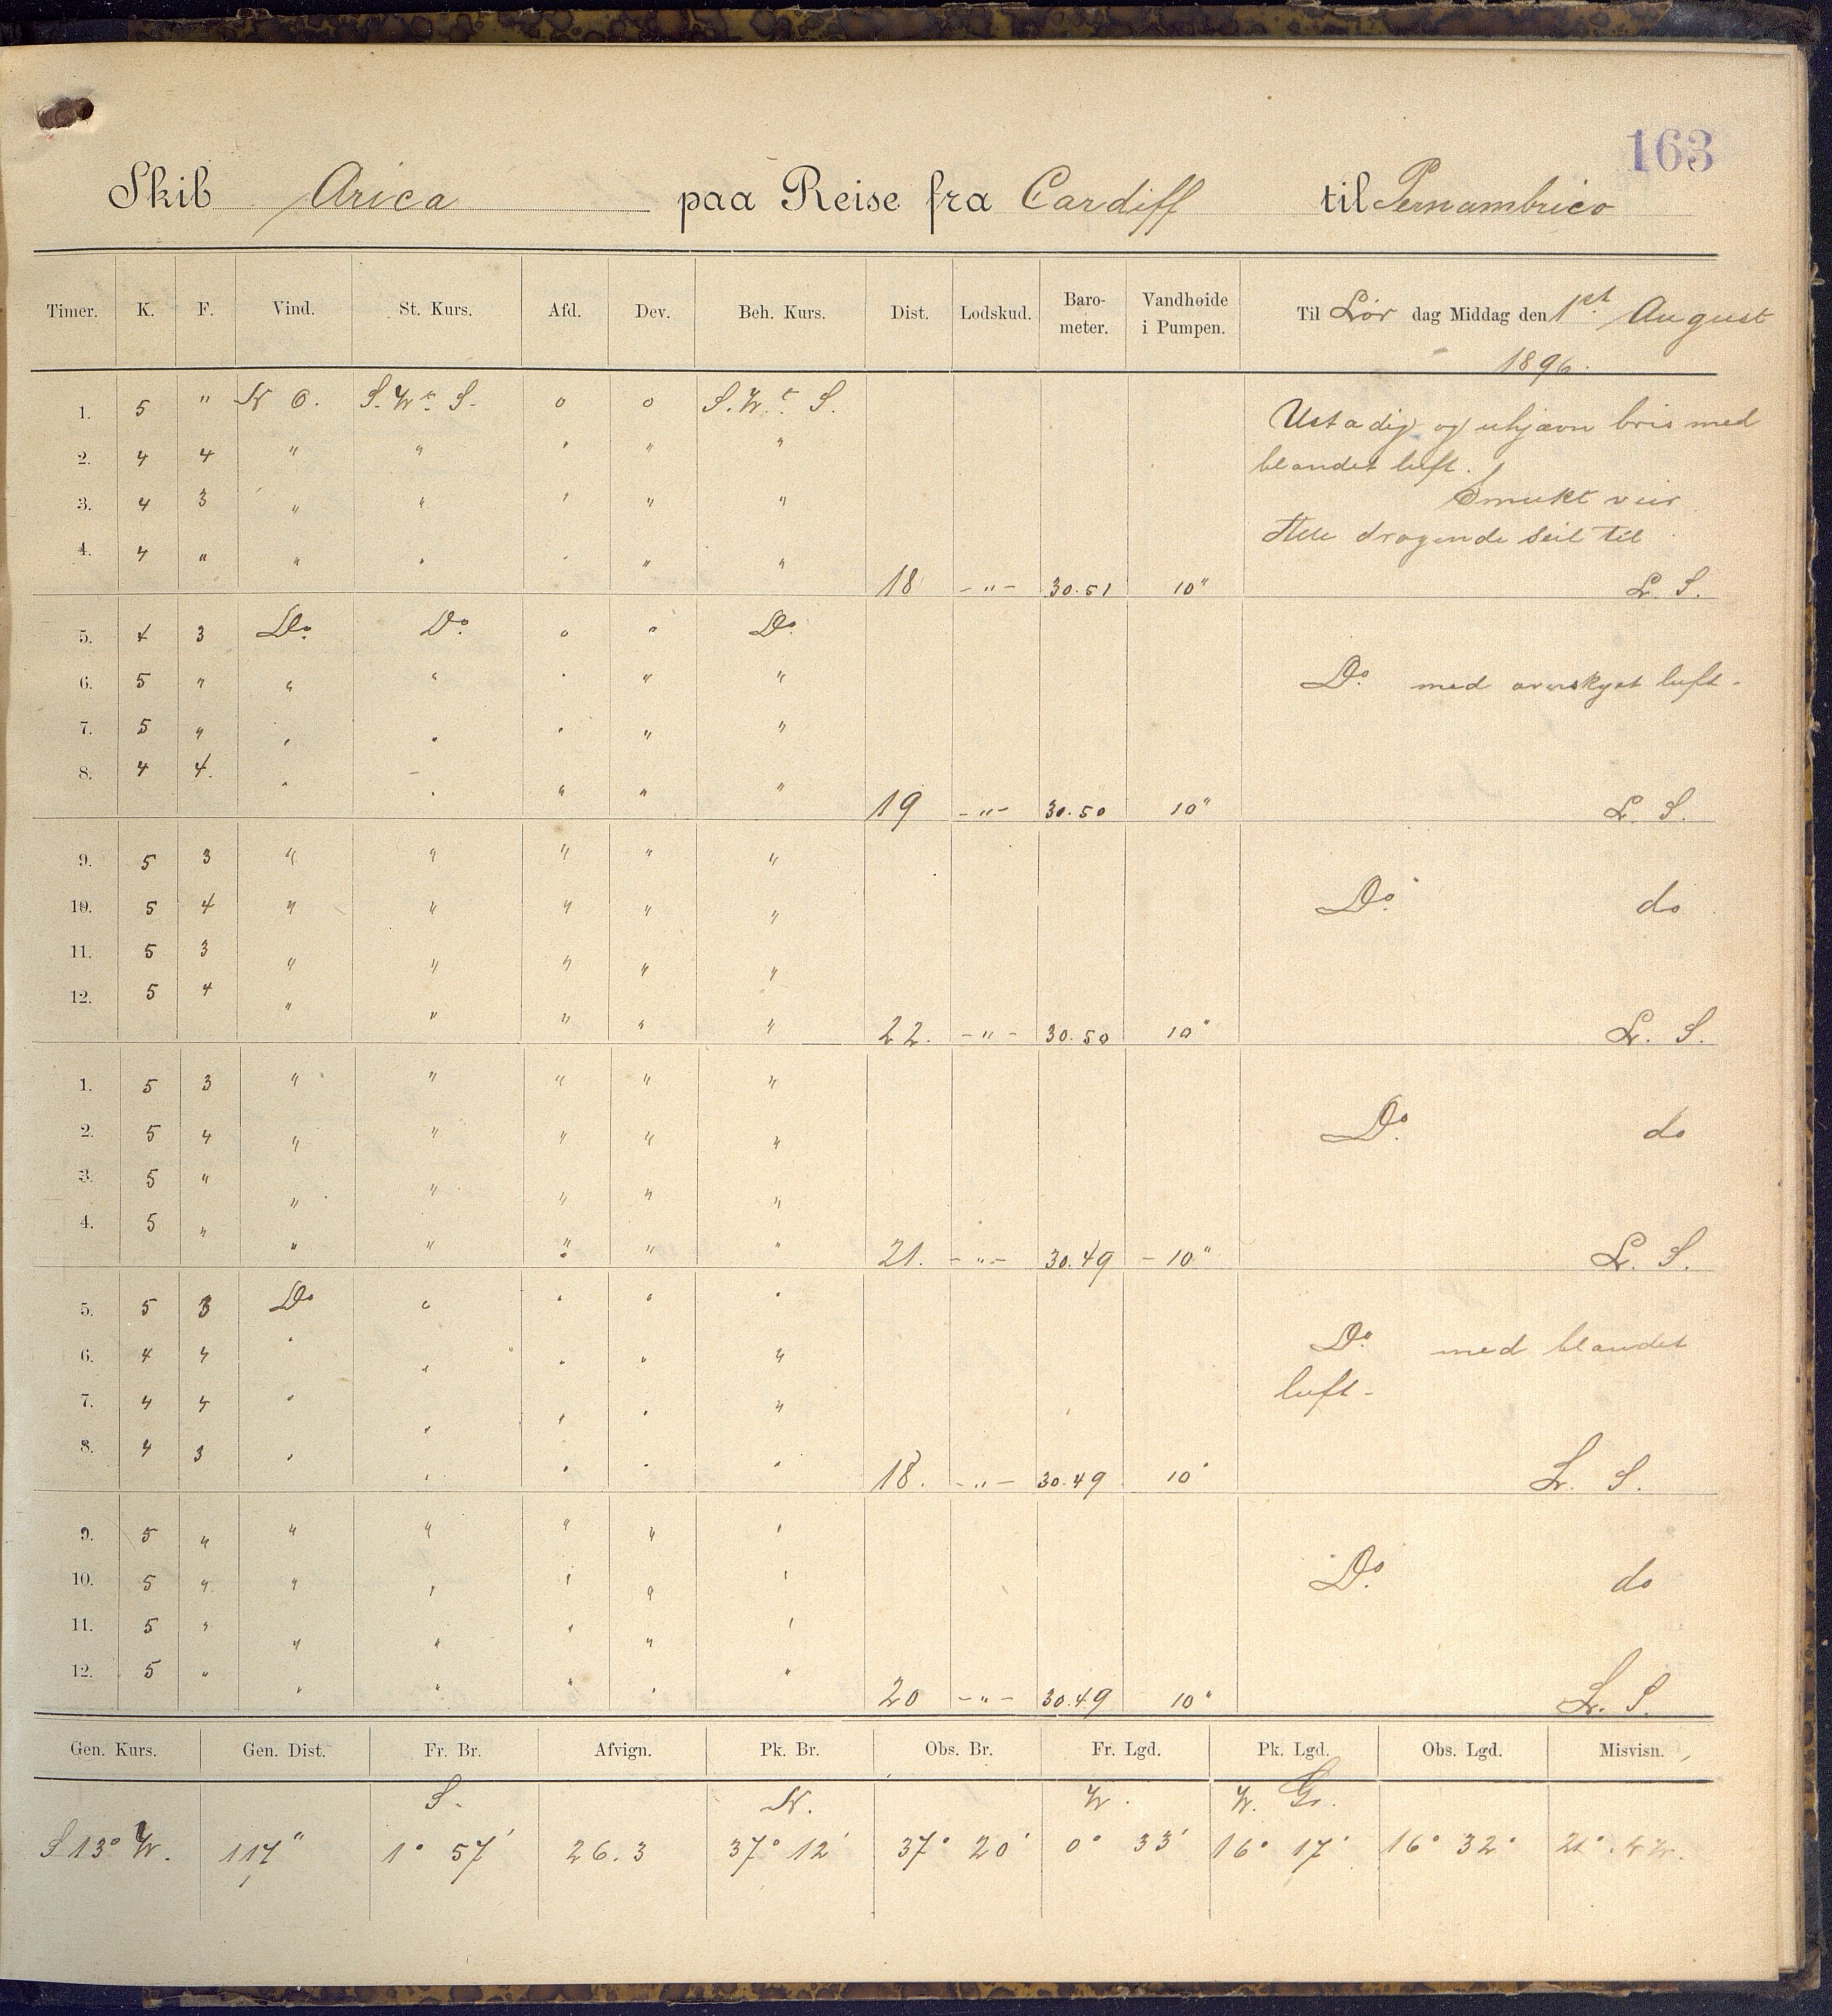 163
Skib Arica paa Reise fra Cardiff til Pernambuco
Timer. K. F. Vind. St. Kurs. Afd. Dev. Beh. Kurs. Dist. Lodskud. Baro-meter. Vandhøide i Pumpen. Til Lør dag Middag den 1st August
1896.
1. 5 " N O. S. W t S. 0 0 S. W. t S. Ustadig og ujævn bris med
2. 4 4 " " " " " blandet luft.
3. 4 3 " " " " " Smukt veir
4. 4 " " " " " " 18 -"- 30.51 10" Alle dragende Seil til
L. S.
5. 4 3 Do. Do. 0 " Do.
6. 5 " " " " " " Do. med overskyet luft.
7. 5 " " " " " "
8. 4 4. " " " " " 19 -"- 30.50 10" L. S.
9. 5 3 " " " " "
10. 5 4 " " " " " Do. do
11. 5 3 " " " " "
12. 5 4 " " " " " 22. -"- 30.50 10" L. S.
1. 5 3 " " " " "
2. 5 4 " " " " " Do. do
3. 5 " " " " " "
4. 5 " " " " " " 21. -"- 30.49 -10" L. S.
5. 5 3 Do " " " "
6. 4 4 " " " " " Do. med blandet
7. 4 4 " " " " " luft-
8. 4 3 " " " " " 18. -"- 30.49 10" L. S.
9. 5 " " " " " "
10. 5 " " " " " " Do. do
11. 5 " " " " " "
12. 5 " " " " " " 20 -"- 30.49 10" L. S.
Gen. Kurs. Gen. Dist. Fr. Br. Afvign. Pk. Br. Obs. Br. Fr. Lgd. Pk. Lgd. Obs. Lgd. Misvisn.
S. N. W. W. Gr.
S 13° W. 117" 1° 57' 26.3 37° 12' 37° 20' 0° 33' 16° 17' 16° 32' 21°